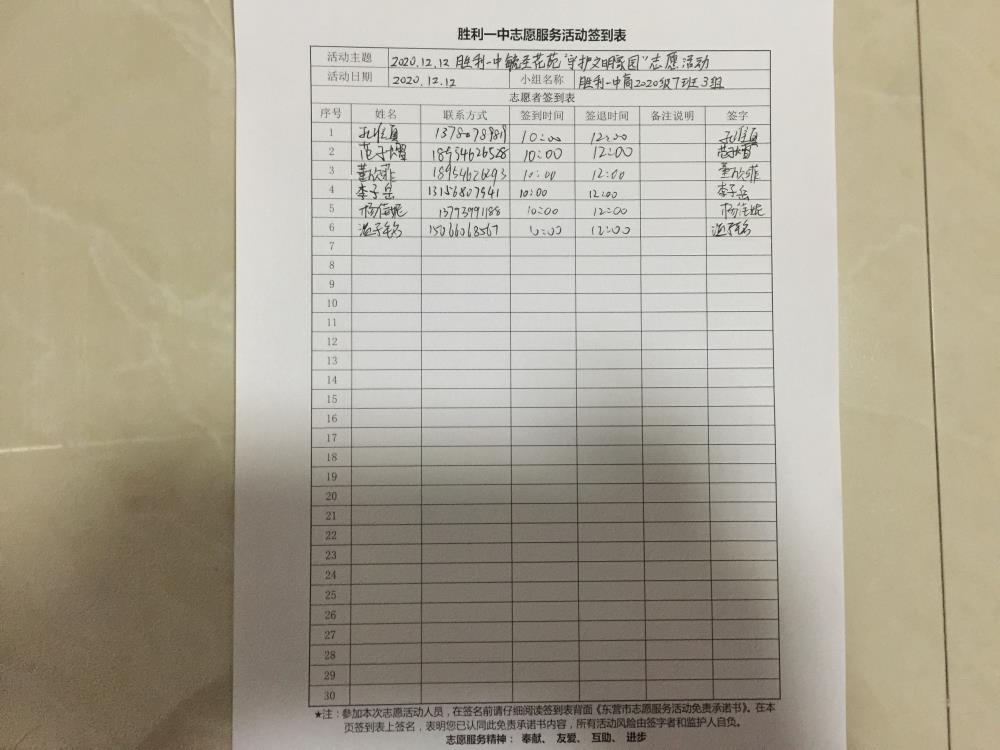 胜利一中志愿服务活动签到表
活动主题 2020.12.12 胜利一中毓秀花苑"守护文明家园"志愿活动
活动日期 2020.12.12 小组名称 胜利一中高2020级7班3组
志愿者签到表
序号 姓名 联系方式 签到时间 签退时间 备注说明 签字
1 10:00 12:00
2 18954626528 10:00 12:00
3 董欣菲 18954626293 10:00 12:00 董欣菲
4 李子岳 13156807941 10:00 12:00 李子岳
5 杨佳妮 13793991188 10:00 12:00 杨佳妮
6 15066068567 10:00 12:00
7
8
9
10
11
12
13
14
15
16
17
18
19
20
21
22
23
24
25
26
27
28
29
30
★注：参加本次志愿活动人员，在签名前请仔细阅读签到表背面《东营市志愿服务活动免责承诺书》。在本
页签到表上签名，表明您已认同此免责承诺书内容，所有活动风险由签字者和监护人自负。
志愿服务精神： 奉献、 友爱、 互助、 进步